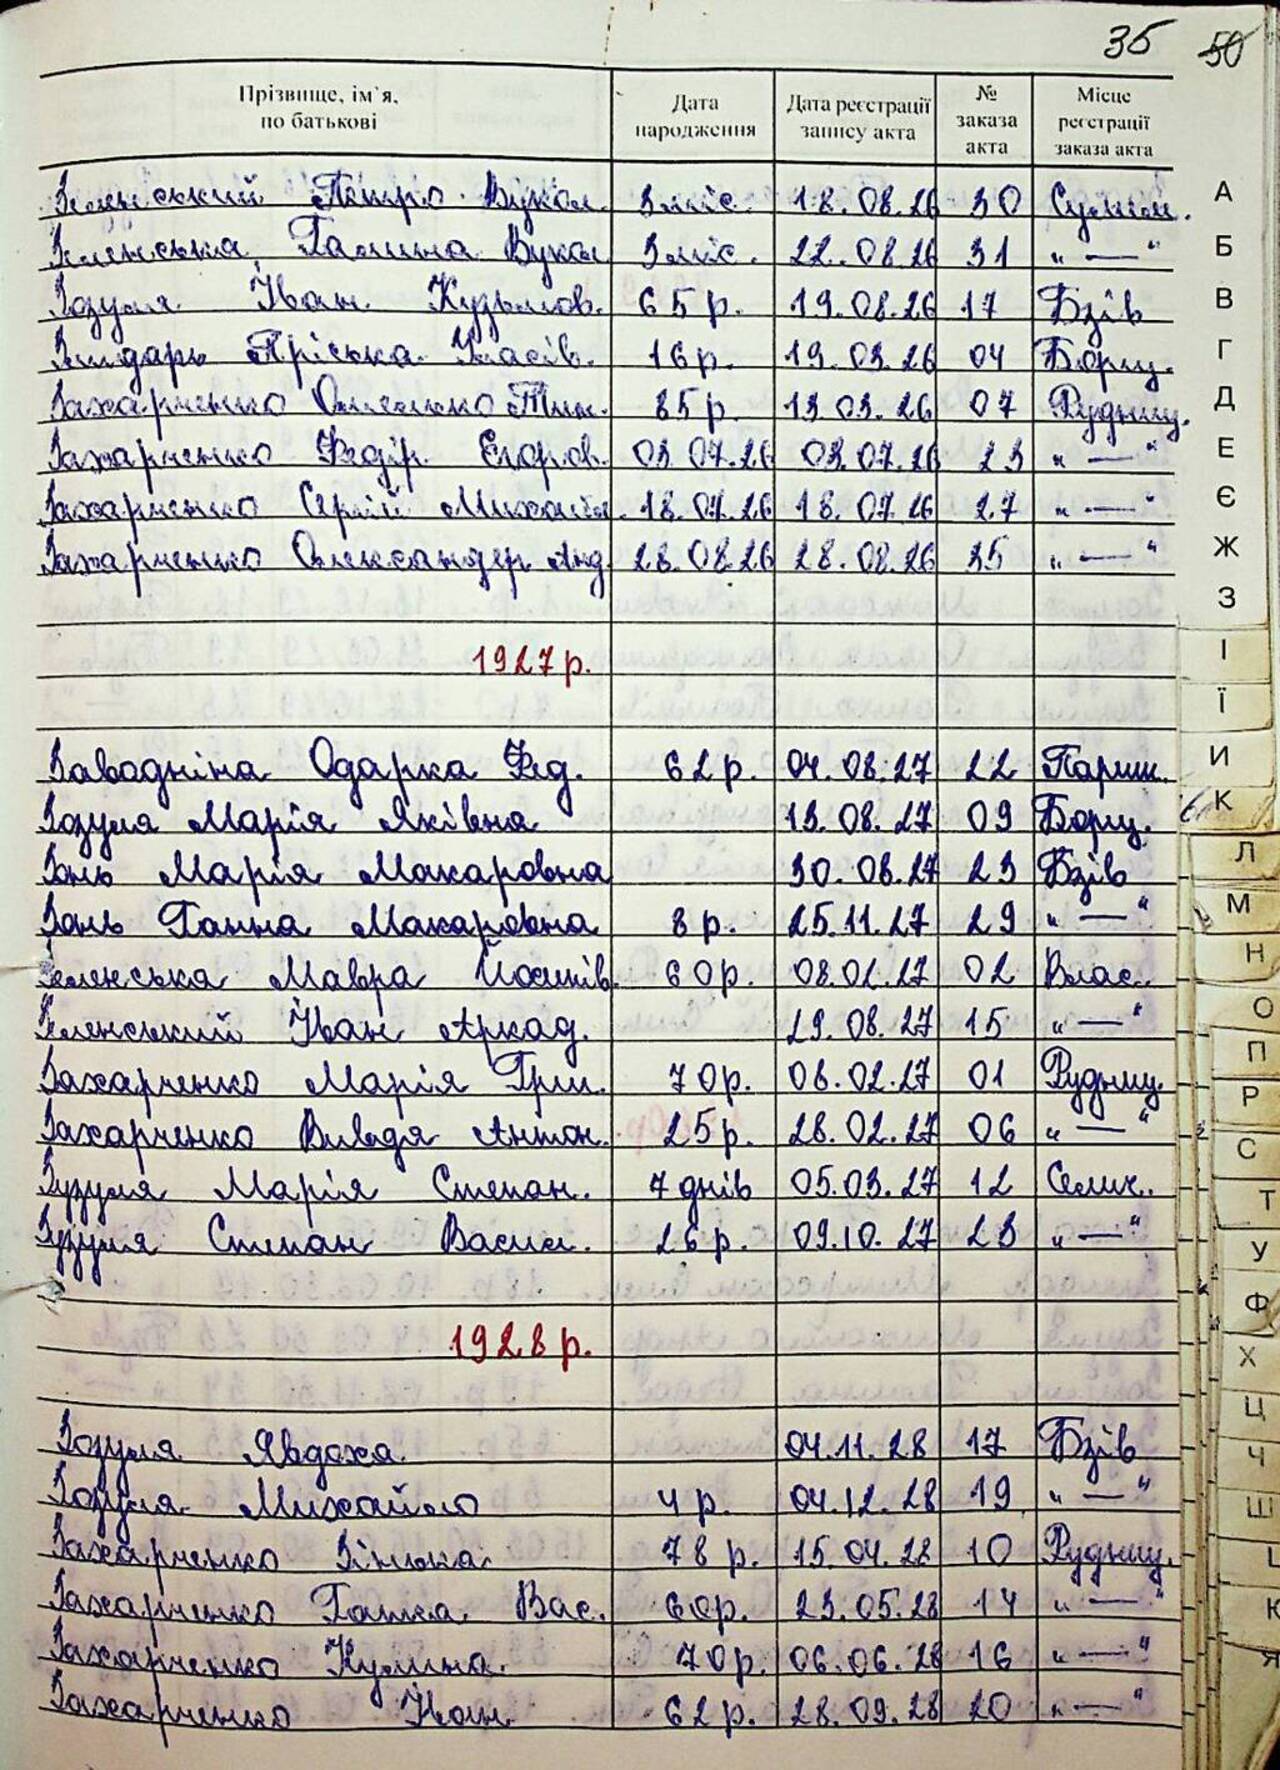 35 50
Прізвище, ім'я, по батькові Дата народження Дата реєстрації запису акта № заказа акта Місце реєстрації заказа акта
Зеленський Петро Вукол. 3 міс. 18.08.26 30 Сулим.
Зеленська Галина Вукол 3 міс. 22.08.26 31 „ — "
Зозуля Іван Кузьмов. 65 р. 19.08.26 17 Бзів
Пріська Власів. 16 р. 19.03.26 04 Борщ.
Захарченко Олешко Тим. 85 р 13.03.26 07 Рудниц.
Захарченко Федір Егоров. 03.07.26 03.07.26 23 „ — "
Захарченко Сергій Михайл. 18.07.26 18.07.26 27 „ — "
Захарченко Олександер Анд 28.08.26 28.08.26 35 „ — "
1927 р.
Заводніна Одарка Фед. 62 р. 04.08.27 22 Париш.
Зозуля Марія Яківна 13.08.27 09 Борщ.
Зань Марія Макаровна 30.08.27 23 Бзів
Зань Ганна Макаровна 8 р. 25.11.27 29 „ — "
Зеленська Мавра Йосипів. 60 р. 08.02.27 02 Влас.
Зеленський Іван Аркад. 29.08.27 15 „ — "
Захарченко Марія Гри. 70 р. 06.02.27 01 Рудниц.
Захарченко Антон. 25 р. 28.02.27 06 „ — "
Зузуля Марія Степан. 7 днів 05.03.27 12 Селич.
Зузуля Степан Васил. 26 р. 09.10.27 23 „ — "
1928 р.
Зозуля Явдоха 04.11.28 17 Бзів
Зозуля Михайло 4 р. 04.12.28 19 „ — "
Захарченко Зінька 78 р. 15.04.28 10 Рудниц.
Захарченко Гашка Вас. 60 р. 23.05.28 14 „ — "
Захарченко Кулина 70 р. 06.06.28 16 „ — "
Захарченко Іван 62 р. 28.09.28 20 „ — "
А
Б
В
Г
Д
Е
Є
Ж
З
І
Ї
И
К
Л
М
Н
О
П
Р
С
Т
У
Ф
Х
Ц
Ч
Ш
Я